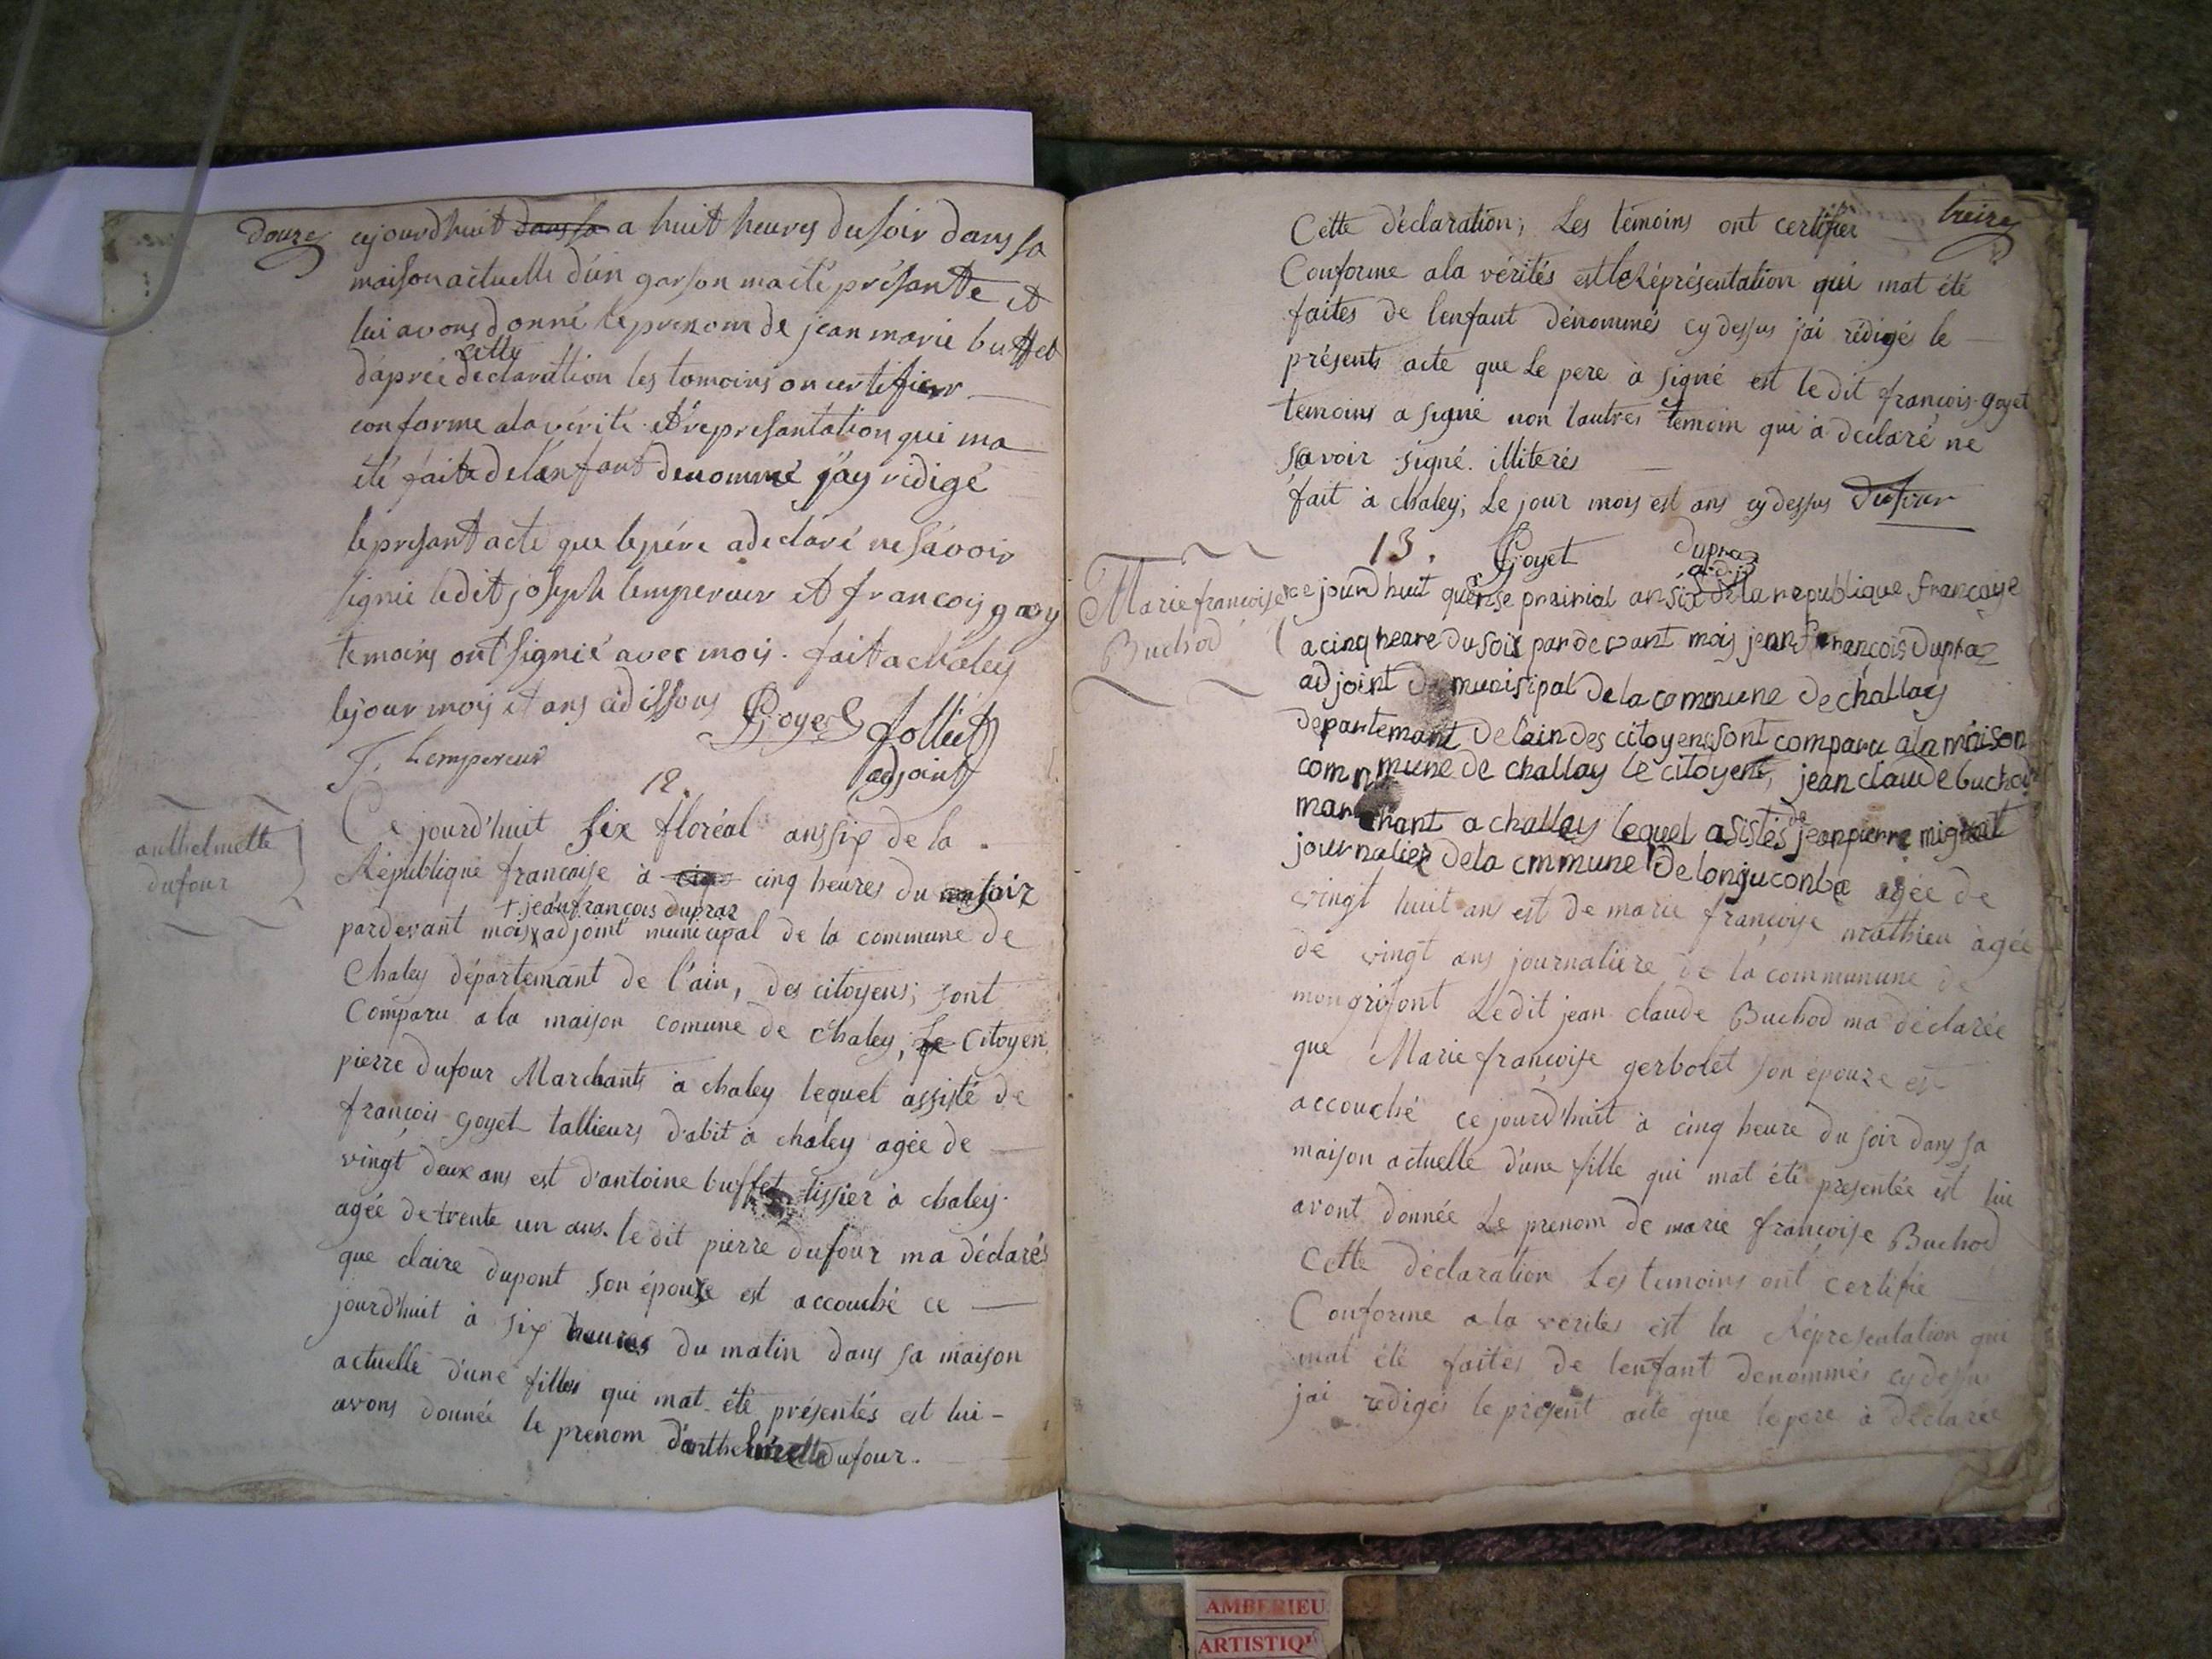 douze
cejourdhuit dans sa a huit heures du soir dans sa
maison actuelle d'un garson ma été présante et
lui avons donné le prenom de jean marie buffet
d'apreé cette déclaration les tomoins on certifier
conforme a la vérité et représantation qui ma
été faite de lénfant denommé j'ay rédigé
le présant acte que le pére a déclaré ne sávoir
signié le dit joseph lempereur et françois goy
temoins ont signié avec mois. fait a chaley
le jour mois et ans cidissous Goyet Jolliet
F. Lempereur adjoint
12.
anthelmette
dufour
Ce jourd'huit six floréal anssix de la
République francaise à cinq heures du soir
+ jean françois dupraz
pardevant mois x adjoint municipal de la commune de
Chaley départemant de l'ain, des citoyens; sont
Comparu a la maison comune de chaley, Le Citoyen
pierre dufour Marchants à chaley lequel assisté de
françois goyet tallieurs d'abit à chaley agée de
vingt deux ans est d'antoine buffet tissier à chaley.
agée de trente un ans. le dit pierre dufour ma déclarés
que claire dupont son épouse est accouché ce
jourd'huit à six heures du matin dans sa maison
actuelle d'une filles qui mat été présentés est lui-
avons donnée le prenom d'anthelmette dufour.
treize
Cette déclaration; Les témoins ont certifier
Conforme a la vérités est la Réprésentation qui mat été
faites de lenfant dénommés cy dessus j'ai rédigés le
présents acte que Le pere à signé est le dit francois goyet
temoins a signé non l'autres temoin qui à déclaré ne
savoir signé. illiterés
fait à chaley; Le jour mois est ans cy dessus Dufour
13. Goyet dupraz
a.dj.
Marie françoise
Buchod
ce jourd huit quense prairial an six de la republique françaye
a cinq heare du soir par de vant mois jean françois Dupraz
adjoint munisipal de la commune de challay
departemant de lain des citoyens sont comparu a la maison
commune de challay le citoyent, jean claude buchod
marchant a challay lequel asistés de jean pierre mignat
journalier de la cmmune de lonjuconbe agée de
vingt huit ans est de marie françoise mathieu agée
de vingt ans journaliere de la communune de
mongrifont Le dit jean claude Buchod ma déclarée
que Marie françoise gerbolet son épouze est
accouché ce jourd'huit à cinq heure du soir dans sa
maison actuelle d'une fille qui mat été presentée est lui
avont donnée Le prenom de marie françoise Buchod
Cette déclaration Les temoins ont certifie
Conforme a la verites est la Répresentation qui
mat été faites de lenfant denommés cy dessus
jai rediges le présent acte que le pere à déclaree
AMBERIEU
ARTISTIQU